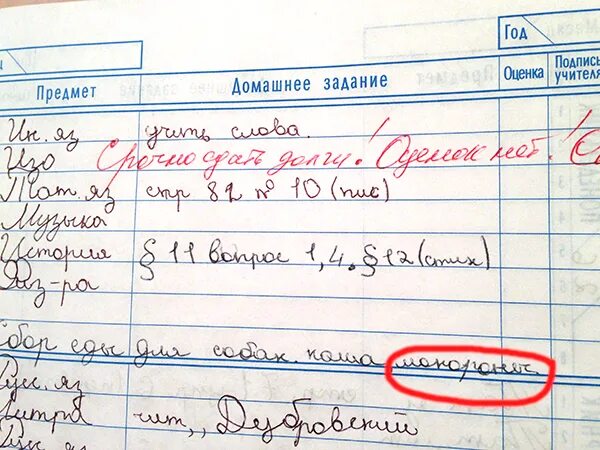 Год
Предмет Домашнее задание Оценка Подпись учителя
Ин. яз учить слова.
Изо Срочно сдать долги! Оценок нет!
Тат. яз стр 82 № 10 (пис)
Музыка
История § 11 вопрос 1,4. § 12 (стих)
Физ-ра
сбор еды для собак. каша макороны
Рус. яз
Литра чит ,, Дубровский
Рус яз